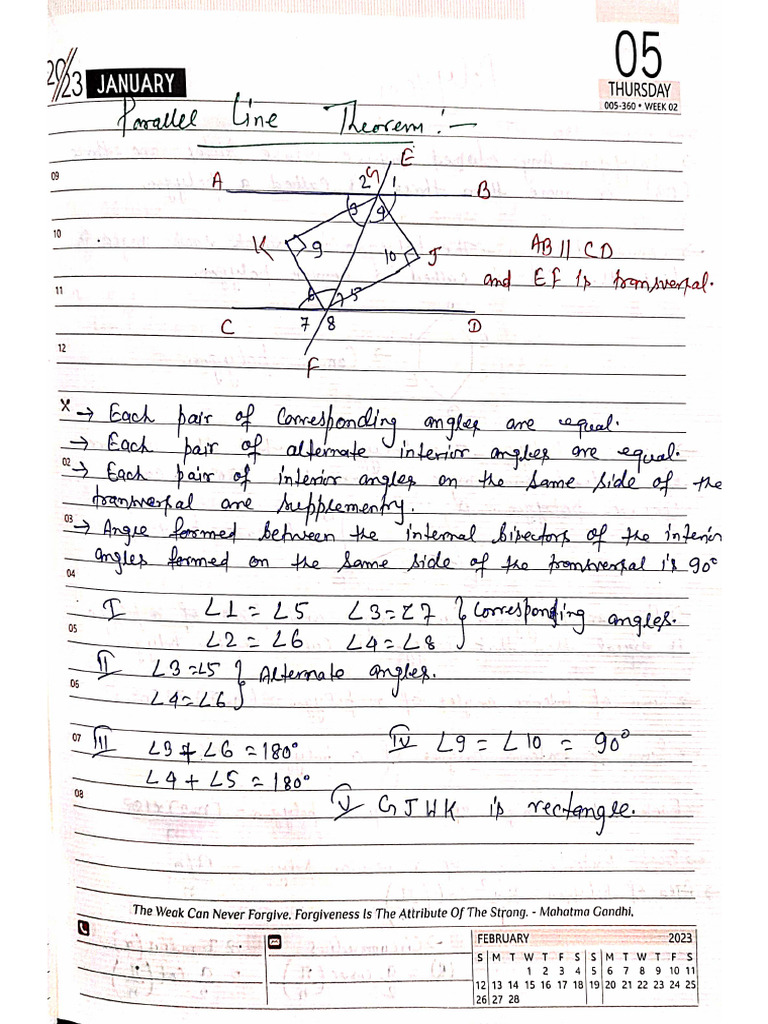 2023 JANUARY
05
THURSDAY
005-360 • WEEK 02
Parallel Line Theorem :-
E
09
A 2 G 1 B
3 4
10
K 9 10 J AB || CD
and EF is transversal.
11
6 5
C 7 8 D
12
F
X → Each pair of corresponding angles are equal.
→ Each pair of alternate interior angles are equal.
02 → Each pair of interior angles on the same side of the
transversal are supplementry.
03 → Angle formed between the internal bisectors of the interior
angles formed on the same side of the transversal is 90°
04
I ∠1 = ∠5 ∠3 = ∠7 } Corresponding angles.
05
∠2 = ∠6 ∠4 = ∠8
II ∠3 = ∠5 } Alternate angles.
06
∠4 = ∠6
07
III ∠3 + ∠6 = 180° IV ∠9 = ∠10 = 90°
∠4 + ∠5 = 180°
08
V GJHK is rectangle.
The Weak Can Never Forgive. Forgiveness Is The Attribute Of The Strong. - Mahatma Gandhi.
FEBRUARY 2023
S M T W T F S S M T W T F S
1 2 3 4 5 6 7 8 9 10 11
12 13 14 15 16 17 18 19 20 21 22 23 24 25
26 27 28